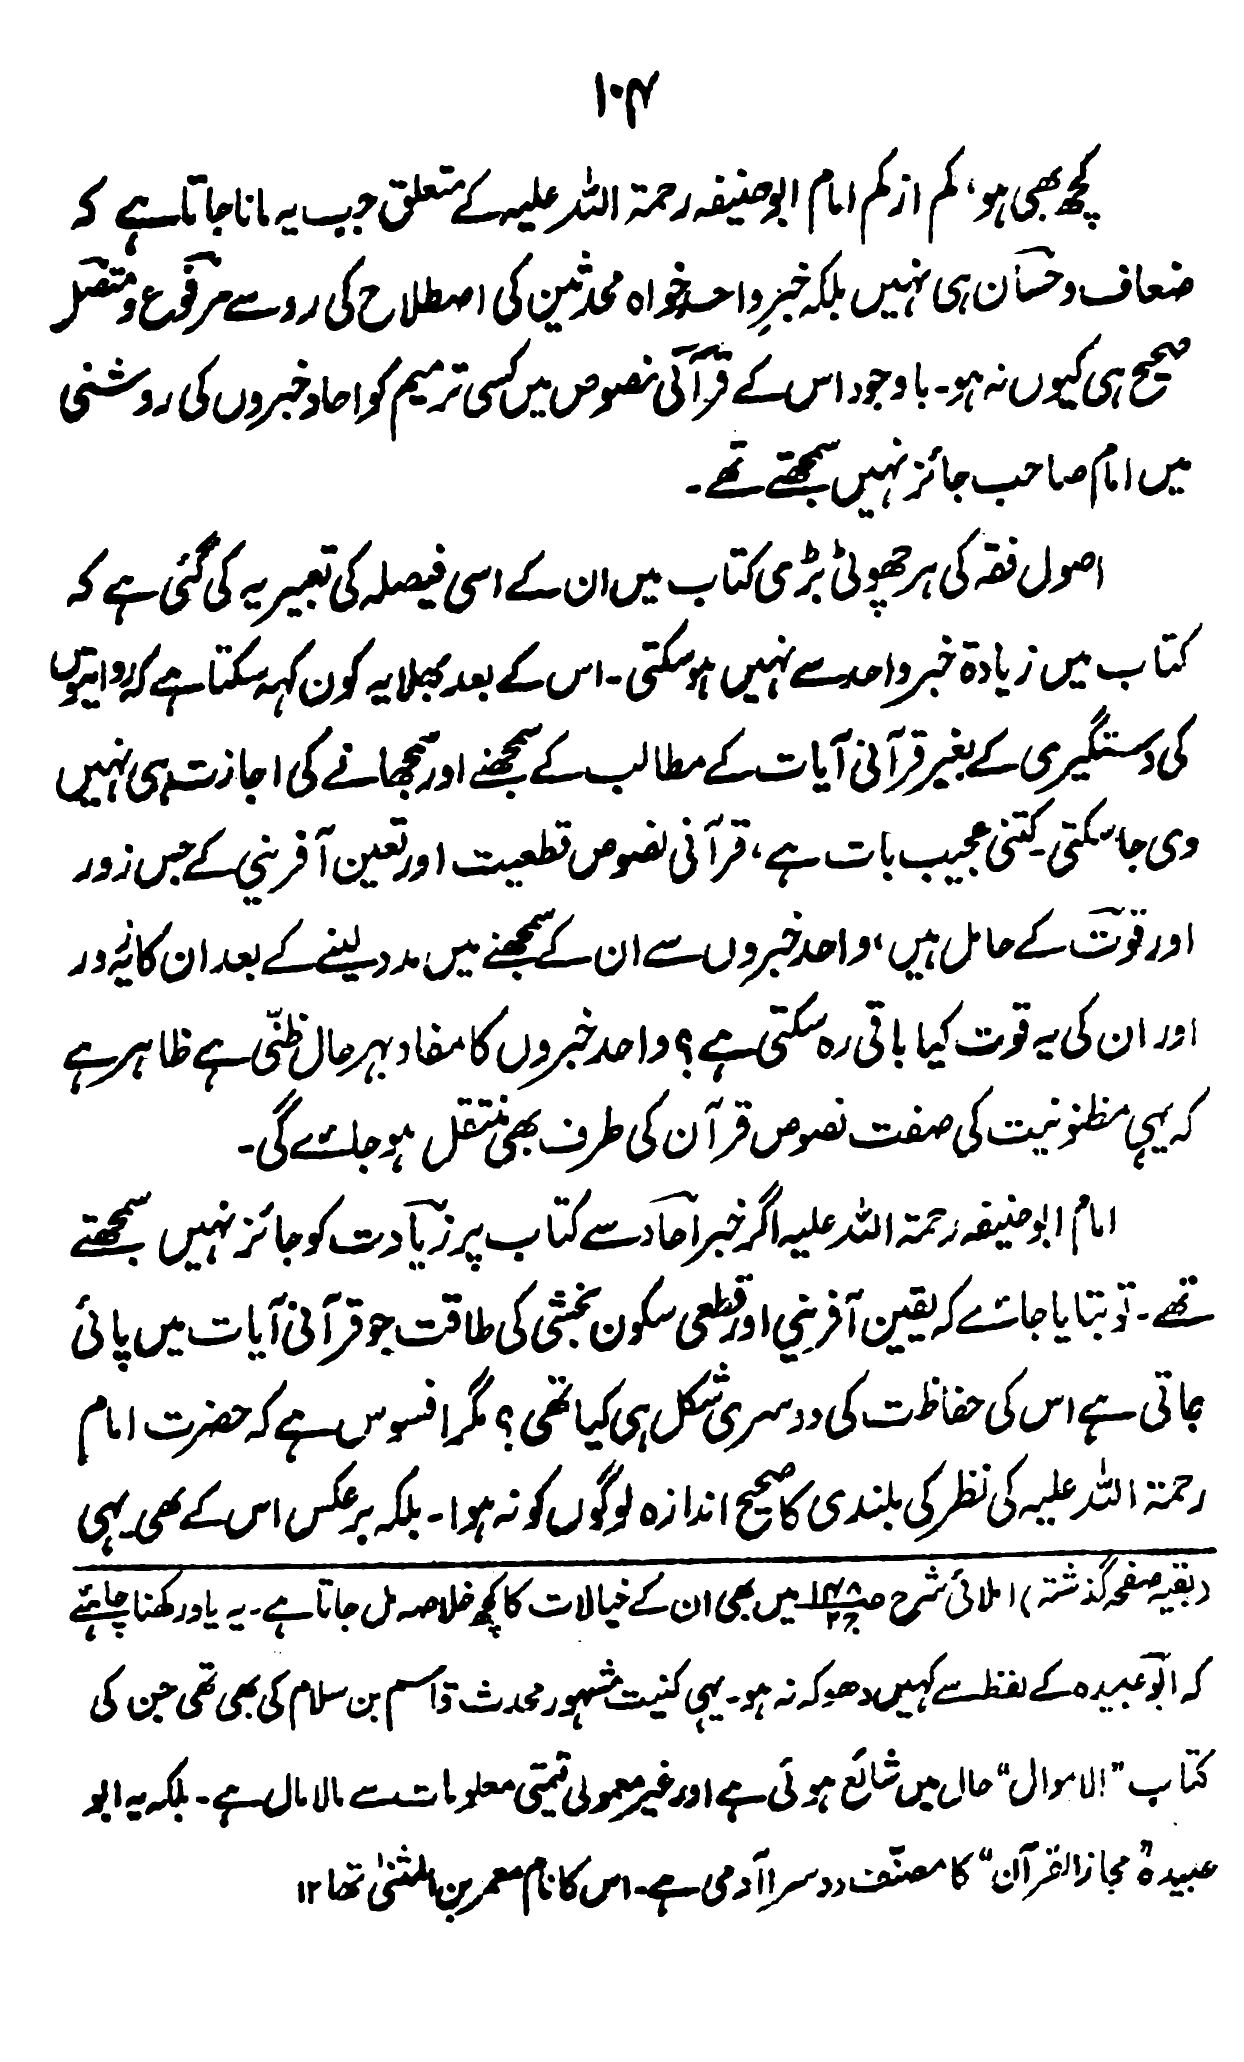 ۱۰۴
کچھ بھی ہو، کم از کم امام ابو حنیفہ رحمۃ اللہ علیہ کے متعلق جب یہ مانا جاتا ہے کہ
ضعاف و حسان ہی نہیں بلکہ خبرِ واحد خواہ محدثین کی اصطلاح کی رو سے مرفوع و متصل
صحیح ہی کیوں نہ ہو۔ باوجود اس کے قرآنی نصوص میں کسی ترمیم کو احاد خبروں کی روشنی
میں امام صاحب جائز نہیں سمجھتے تھے۔
اصول فقہ کی ہر چھوٹی بڑی کتاب میں ان کے اسی فیصلہ کی تعبیر یہ کی گئی ہے کہ
کتاب میں زیادۃ خبر واحد سے نہیں ہو سکتی۔ اس کے بعد بھلا یہ کون کہہ سکتا ہے کہ روایتوں
کی دستگیری کے بغیر قرآنی آیات کے مطالب کے سمجھنے اور سمجھانے کی اجازت ہی نہیں
دی جا سکتی۔ کتنی عجیب بات ہے، قرآنی نصوص قطعیت اور تعین آفرینی کے جس زور
اور قوت کے حامل ہیں، واحد خبروں سے ان کے سمجھنے میں مدد لینے کے بعد ان کا یہ زور
اور ان کی یہ قوت کیا باقی رہ سکتی ہے؟ واحد خبروں کا مفاد بہر حال ظنّی ہے ظاہر ہے
کہ یہی مظنونیت کی صفت نصوص قرآن کی طرف بھی منتقل ہو جائے گی۔
امام ابو حنیفہ رحمۃ اللہ علیہ اگر خبر آحاد سے کتاب پر زیادت کو جائز نہیں سمجھتے
تھے۔ تو بتایا جائے کہ یقین آفرینی اور قطعی سکون بخشی کی طاقت جو قرآنی آیات میں پائی
جاتی ہے اس کی حفاظت کی دوسری شکل ہی کیا تھی؟ مگر افسوس ہے کہ حضرت امام
رحمۃ اللہ علیہ کی نظر کی بلندی کا صحیح اندازہ لوگوں کو نہ ہوا۔ بلکہ برعکس اس کے بھی یہی
(بقیہ صفحہ گذشتہ) املائی شرح میں بھی ان کے خیالات کا کچھ خلاصہ مل جاتا ہے۔ یہ یاد رکھنا چاہئے
کہ ابو عبیدہ کے لفظ سے کہیں دھوکہ نہ ہو۔ یہی کنیت مشہور محدث قاسم بن سلام کی بھی تھی جن کی
کتاب "الاموال" حال میں شائع ہوئی ہے اور غیر معمولی قیمتی معلومات سے مالا مال ہے۔ بلکہ یہ ابو
عبیدہ "مجاز القرآن" کا مصنّف دوسرا آدمی ہے۔ اس کا نام معمر بن المثنیٰ تھا ۱۲